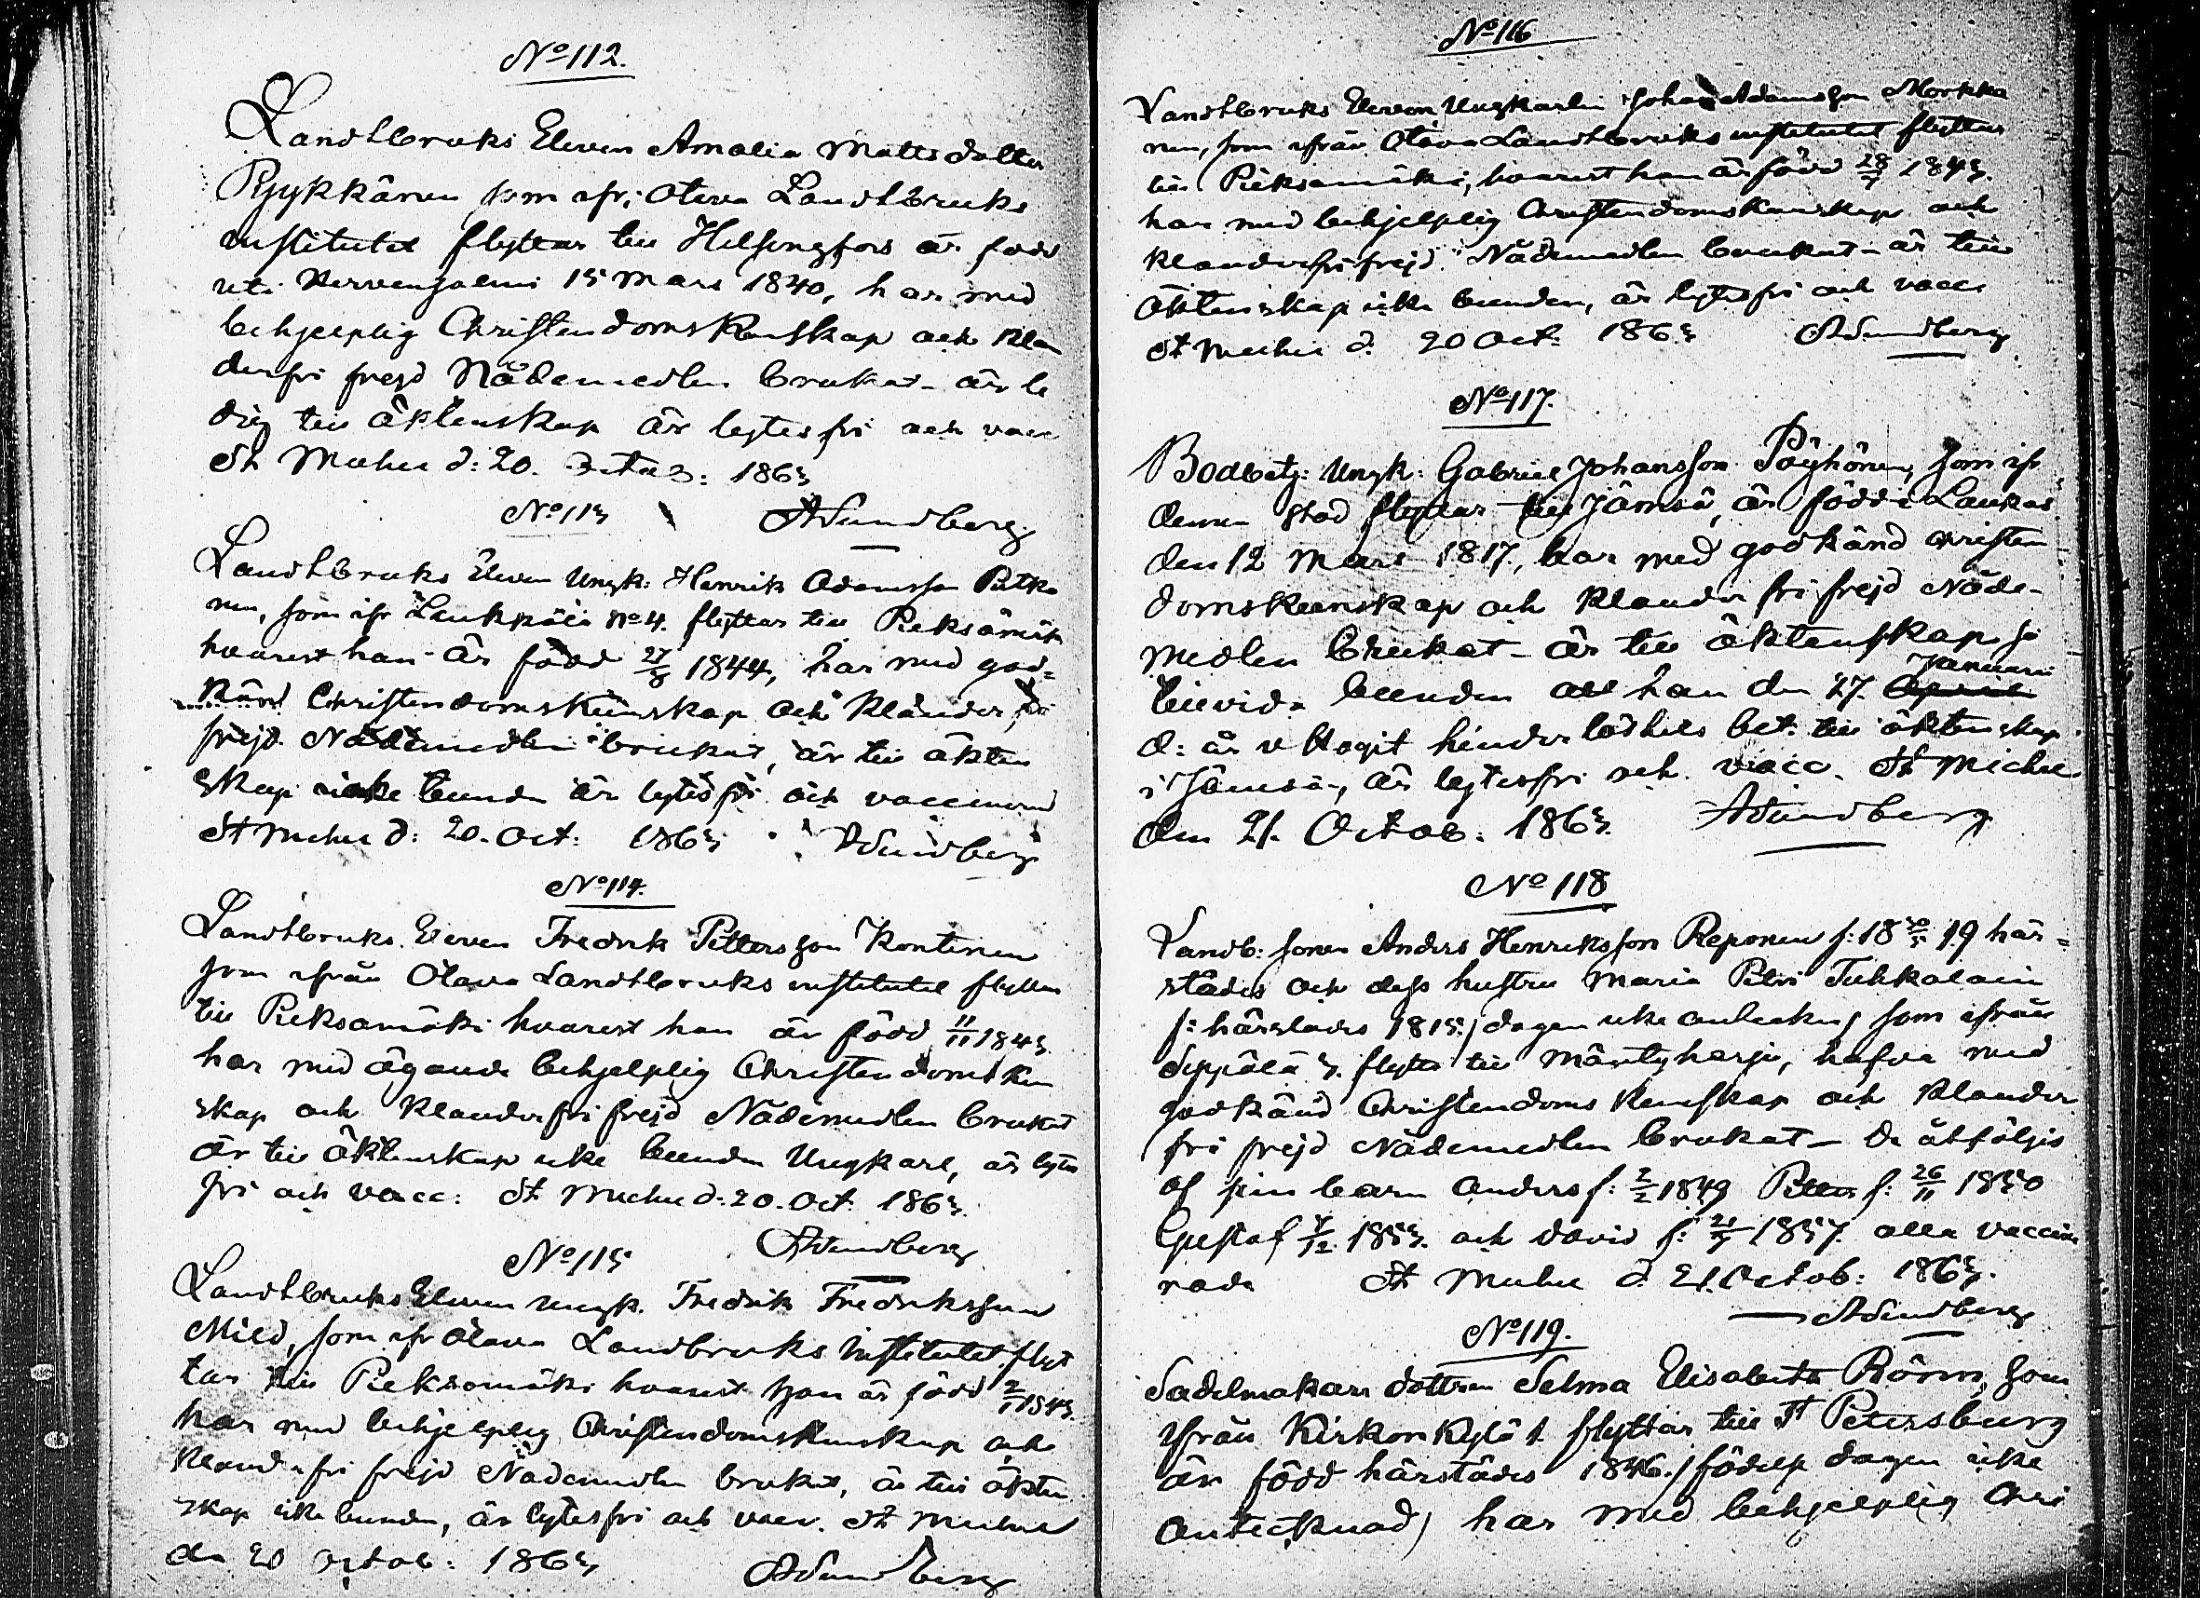 No 112.
Landtbruks Eleven Amalia Mattsdotter
Pyykkänen som ifr: Otava Landtbruks
institutet flyttar till Helsingfors är född
uti Kervensalmi 15 Mars 1840, har med
behjelplig Christendomskunskap och klan
derfri frejd Nådemedlen brukat - är le
dig till äktenskap är lytesfri och vacc
St Michel d: 20. Octob: 1863
ASundberg
No 113
Landtbruks Eleven Ungk: Henrik Adamsson
nen, som ifr No 4. flyttar till Pieksämäki
hvarest han är född 27/8 1844, har med god=
känd Christendomskunskap och klander fri
frejd Nådemedlen brukat, är till äkten
skap icke bunden är lytesfri och vaccinerad
St Michel d: 20. Oct: 1863 ASundberg
No 114.
Landtbruks Eleven Fredrik Pettersson Kontinen
som ifrån Otava Landtbruks institutet flyttar
till Pieksamäki hvarest han är född 11/11 1843
har med ägande behjelplig Christendoms kun
skap och klanderfri frejd Nådemedlen brukat
är till äktenskap icke bunden Ungkarl, är lytes
fri och vacc: St Michel d: 20. Oct. 1863.
ASundberg
No 115
Landtbruks Eleven ungk. Fredrik Fredriksson
Mild, som ifr Otava Landbruks Institutet flyt
tar till Pieksamäki hvarest han är född 1843.
har med behjelplig Christendomskunskap och
klanderfri frejd Nådemedlen brukat, är till äkten
skap icke bunden, är lytesfri och vacc. St Michel
den 20 Octob: 1863
ASundberg
No 116
Landtbruks Eleven Ungkarlen Johan Adamsson
nen, som ifrån Otava Landtbruks institutet flyttar
till Pieksamäki, hvarest han är född 28/7 1843.
har med behjelplig Christendomskunskap och
klanderfri frejd Nådemedlen brukat - är till
äktenskap icke bunden, är lytesfri och vacc:
St Michel d. 20 Oct: 1863 ASundberg
No 117.
Bodbetj: Ungk: Gabriel Johansson Pöyhönen, som ifr
denna stad flyttar till Jämsä, är född i Laukas
den 12 Mars 1817, har med godkänd Christen
domskunskap och klander fri frejd Nåde-
medlen brukat - är till äktenskap så
tillvida bunden att han den 27. Januari
d: år uttagit hinderlöshets bet: till äktenskap
i Jämsä, är lytesfri och vacc. St Michel
den 21. Octob: 1863. ASundberg
No 118
Landb: sonen Anders Henriksson Reponen f: 18 19 här=
städes och dess hustru Maria Petri Tuhkalain
f: härstädes 1815. / dagen icke anteckn / som ifrån
Seppälä 3. flytta till Mäntyharju, hafva med
godkänd Christendoms kunskap och klander
fri frejd Nådemedlen brukat - De åtföljes
af sina barn Anders f: 2/2 1849 Petter f: 26/11 1850
Gustaf 1853. och David f: 1857. alla vaccine
rade St Michel d. 21. Octob: 1863.
ASundberg
No 119.
Sadelmakare dottren Selma Elisabeth Böhm, som
ifrån Kirkonkylä 1 flyttar till St Petersburg
är född härstädes 1846. / födelse dagen icke
antecknad) har med behjelplig Chri